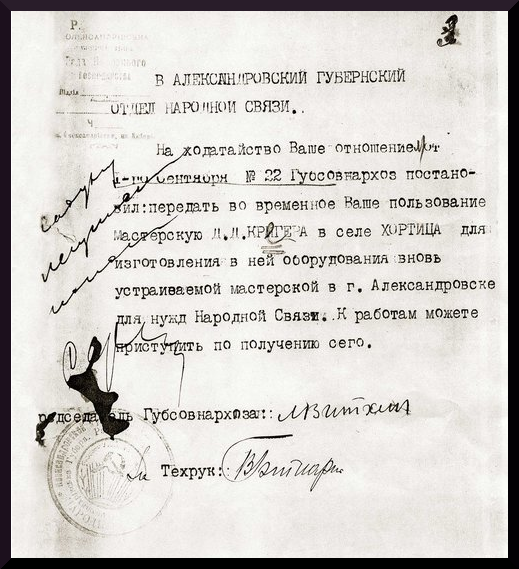 Р.
В АЛЕКСАНДРОВСКИЙ ГУБЕРНСКИЙ
ОТДЕЛ НАРОДНОЙ СВЯЗИ.
На ходатайство Ваше отношением от
1-го Сентября № 22 Губсовнархоз постано-
вил:передать во временное Ваше пользование
Мастерскую Д.Д.КРИГЕРА в селе ХОРТИЦА для
изготовления в ней оборудования вновь
устраиваемой мастерской в г. Александровске
для нужд Народной Связи. К работам можете
приступить по получению сего.
редседатель Губсовнархоза:
Техрук: